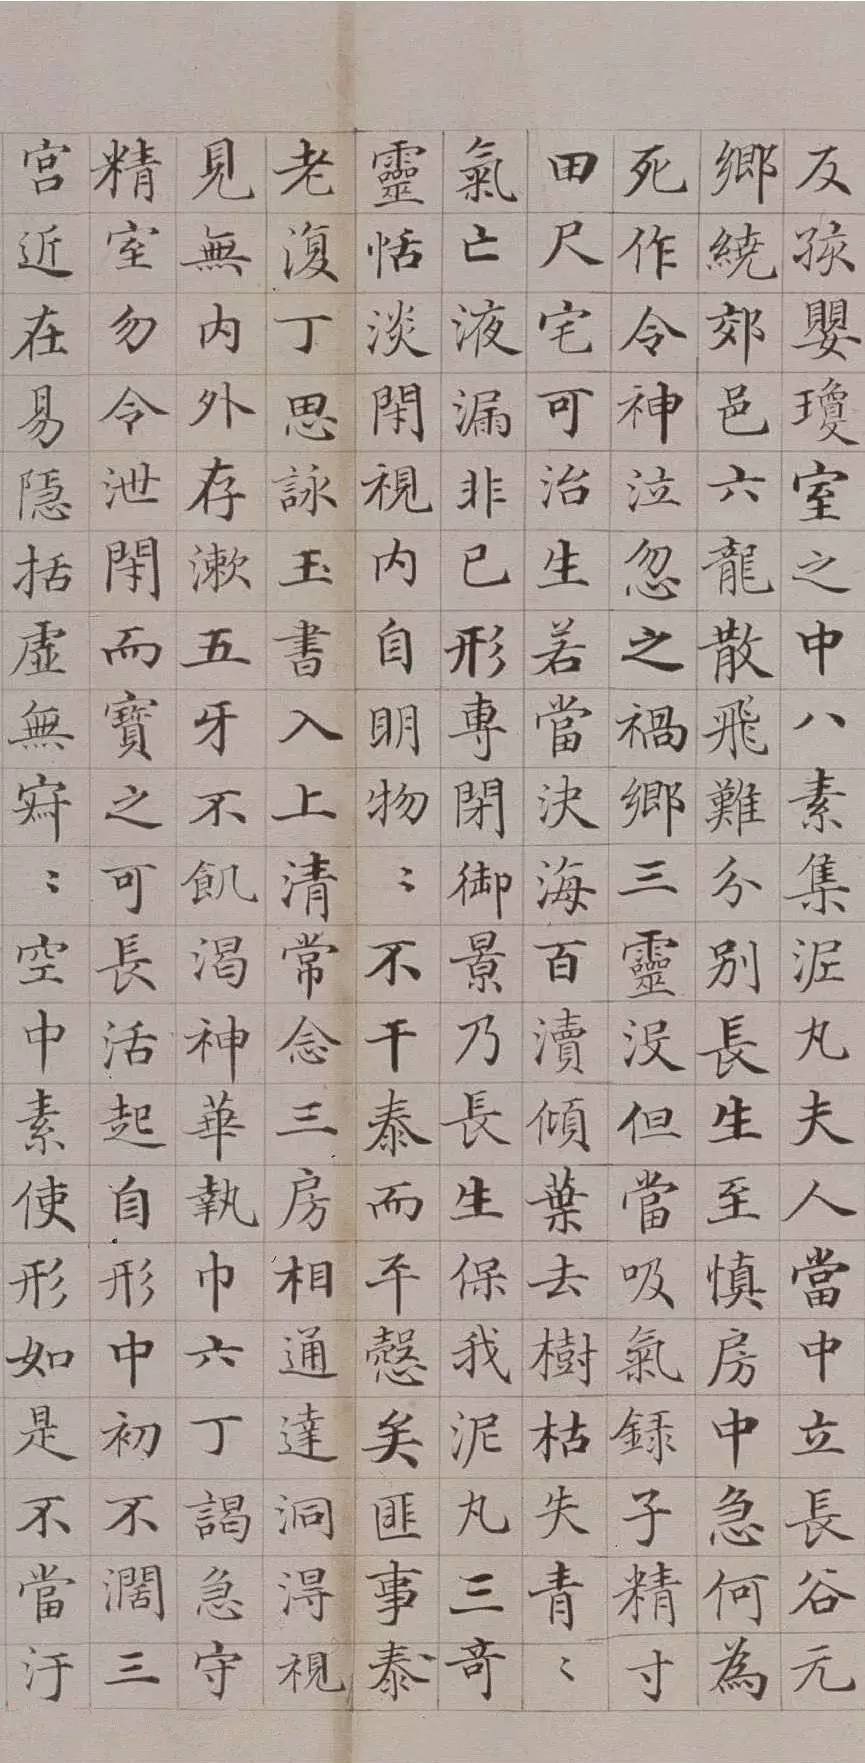 反孩嬰瓊室之中八素集泥丸夫人當中立長谷元
鄉繞郊邑六龍散飛難分別長生至慎房中急何為
死作令神泣忽之禍鄉三靈沒但當吸氣録子精寸
田尺宅可治生若當決海百瀆傾葉去樹枯失青〻
氣亡液漏非已形專閉御景乃長生保我泥丸三奇
靈恬淡閑視内自明物〻不干泰而平愨矣匪事泰
老復丁思詠玉書入上清常念三房相通達洞得視
見無内外存漱五牙不飢渴神華執巾六丁謁急守
精室勿令泄閑而寶之可長活起自形中初不濶三
宮近在易隱括虛無㝛〻空中素使形如是不當汙